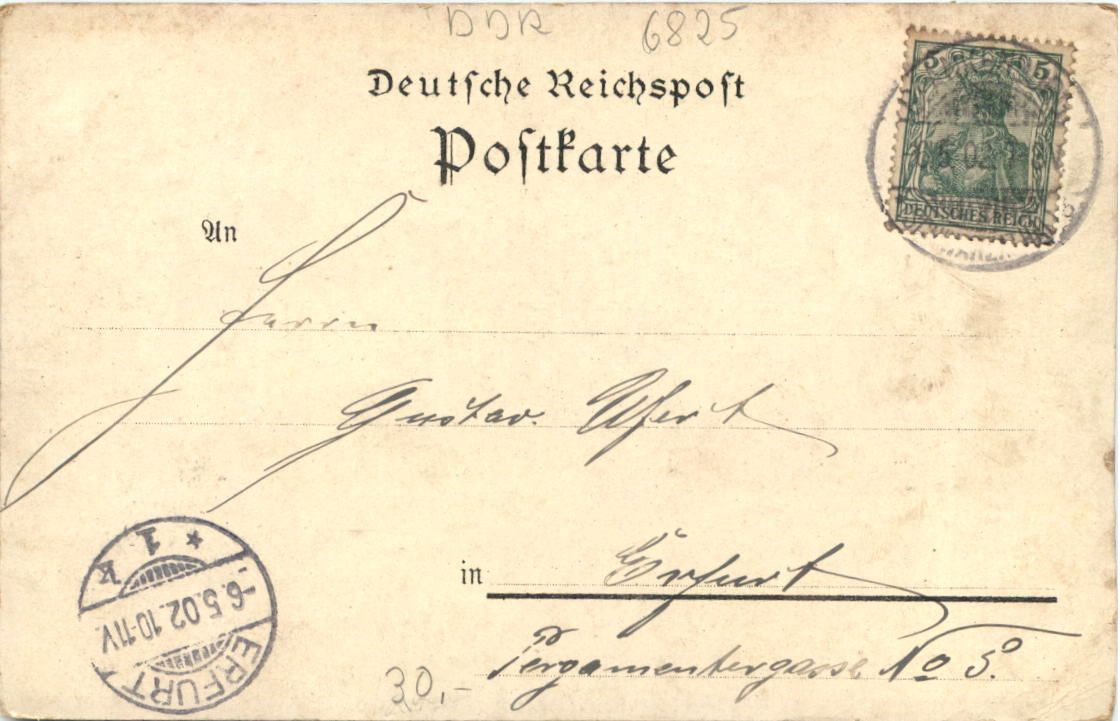 DDR 6825
Deutsche Reichspost
Postkarte
5 5
5.02
DEUTSCHES REICH
An
Herrn
Gustav
in Erfurt
Pergamentergasse No
ERFURT
* 1 k
-6.5.02.10-11V.
30,-